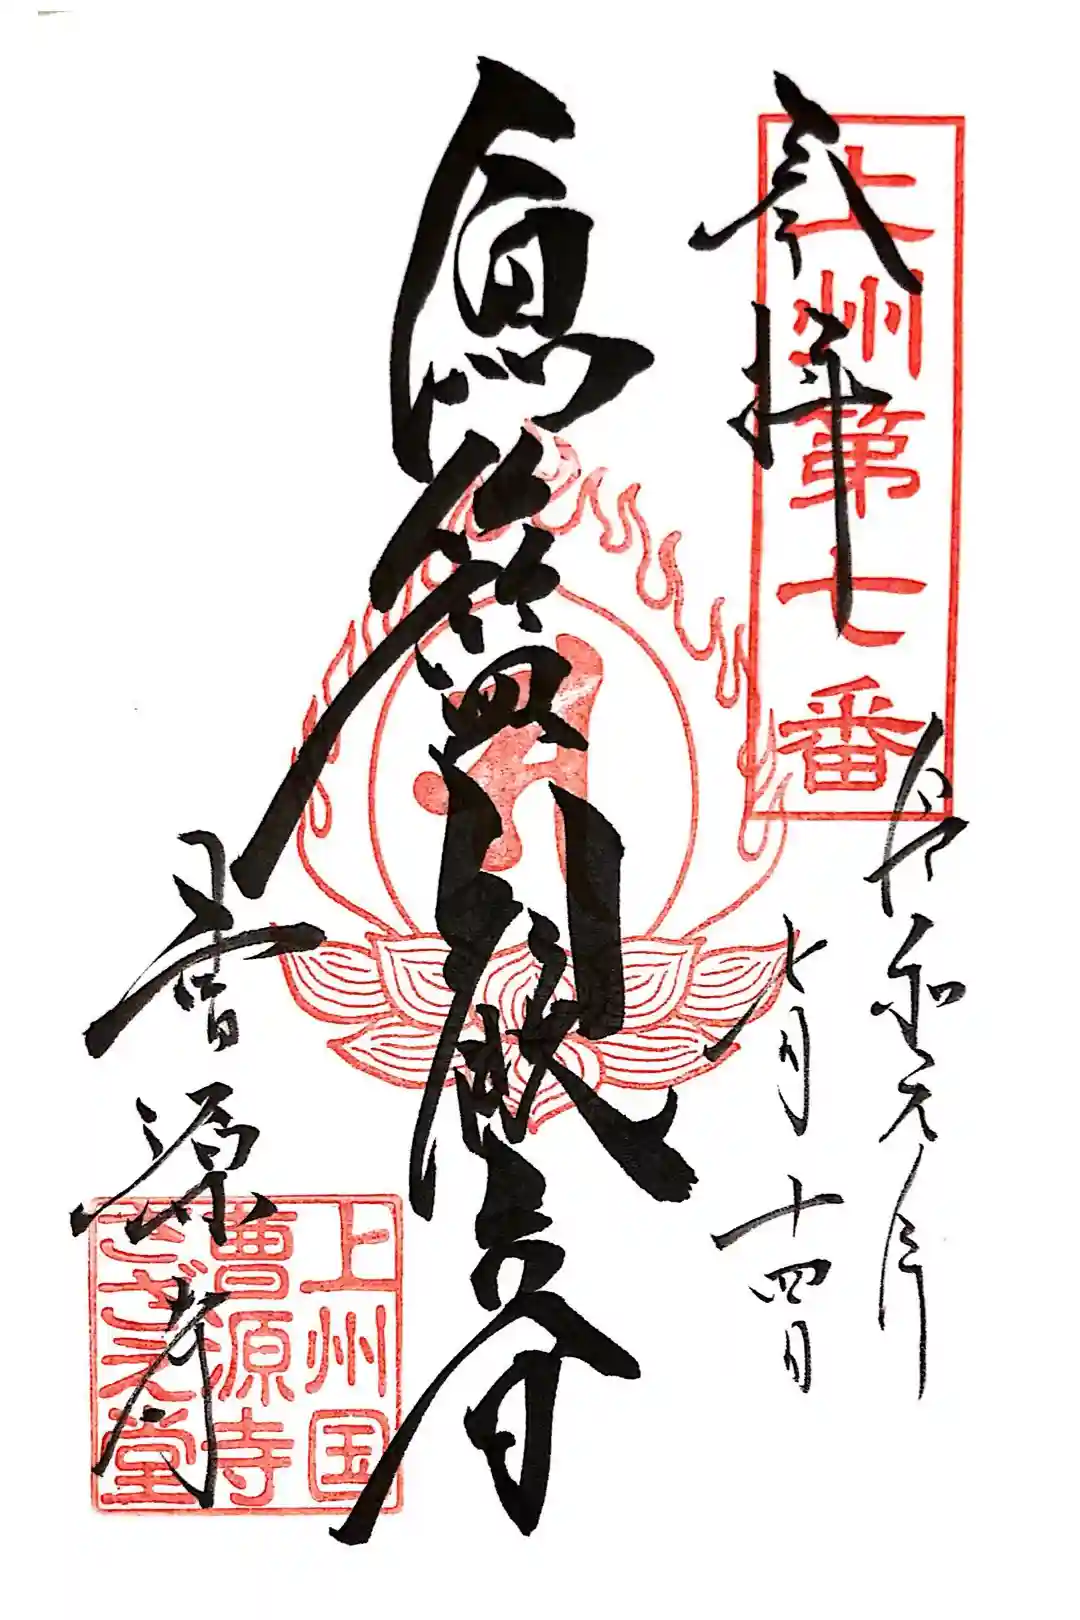 上州第七番
奉拝
令和元年
七月十四日
魚籃観音
曹源寺
上州国
曹源寺
さざえ堂